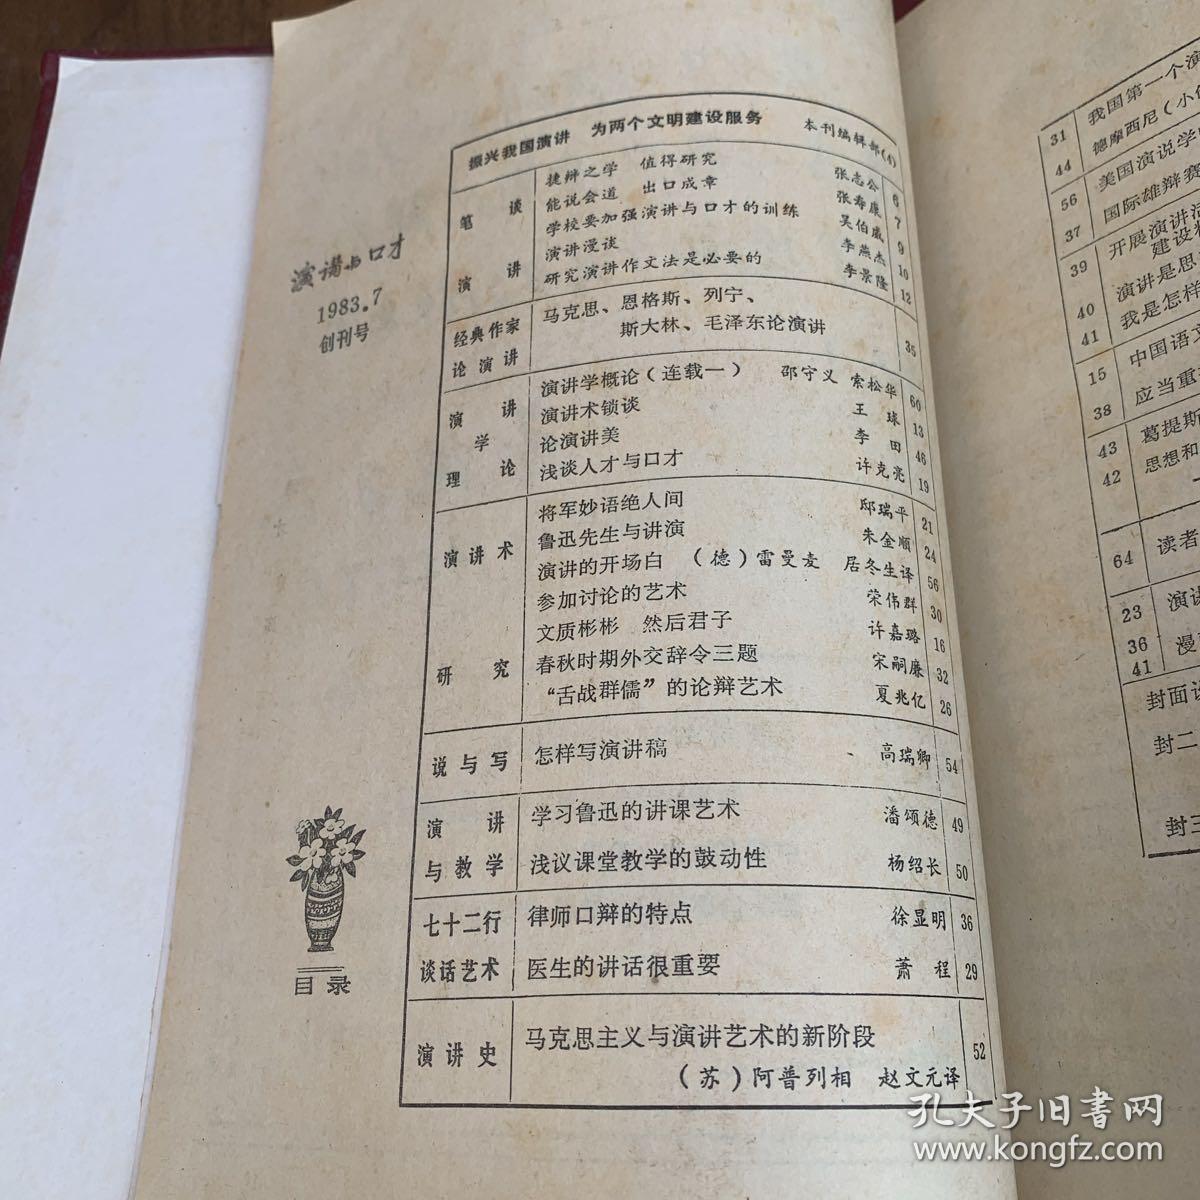 演讲与口才
1983.7
创刊号
目录
振兴我国演讲 为两个文明建设服务 本刊编辑部(4)
笔谈演讲
捷辩之学 值得研究 张志公 6
能说会道 出口成章 张寿康 7
学校要加强演讲与口才的训练 吴伯威 9
演讲漫谈 李燕杰 10
研究演讲作文法是必要的 李景隆 12
经典作家
论演讲
马克思、恩格斯、列宁、
斯大林、毛泽东论演讲 35
演讲
学
理论
演讲学概论(连载一) 邵守义 索松华 60
演讲术锁谈 王球 13
论演讲美 李田 46
浅谈人才与口才 许克亮 19
演讲术
研究
将军妙语绝人间 邸瑞平 21
鲁迅先生与讲演 朱金顺 24
演讲的开场白 (德)雷曼麦 居冬生译 56
参加讨论的艺术 荣伟群 30
文质彬彬 然后君子 许嘉璐 16
春秋时期外交辞令三题 宋嗣廉 32
“舌战群儒”的论辩艺术 夏兆亿 26
说与写
怎样写演讲稿 高瑞卿 54
演讲
与教学
学习鲁迅的讲课艺术 潘颂德 49
浅议课堂教学的鼓动性 杨绍长 50
七十二行
谈话艺术
律师口辩的特点 徐显明 36
医生的讲话很重要 萧程 29
演讲史
马克思主义与演讲艺术的新阶段
(苏)阿普列相 赵文元译 52
31 我国第一个演
44 德摩西尼(小
56 美国演说学
37 国际雄辩赛
39 开展演讲活
建设
40 演讲是思
41 我是怎样
15 中国语文
38 应当重
43 葛提斯
42 思想和
64 读者
23 演讲
36 漫
41
封面
封二
封三
孔夫子旧书网
www.kongfz.com